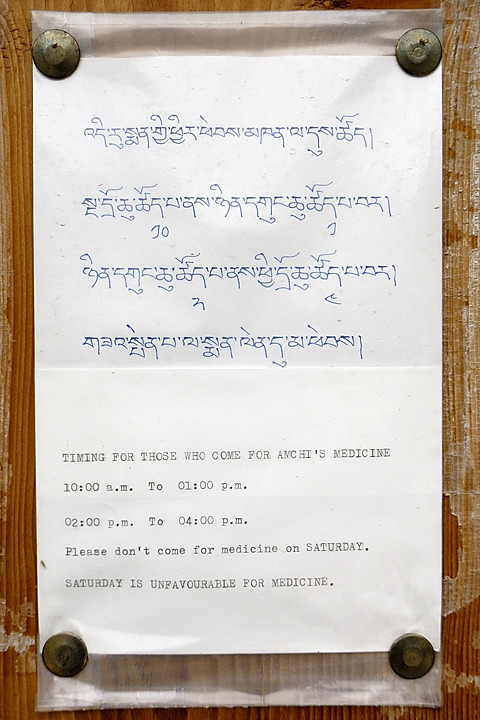 འདི་རུ་སྨན་གྱི་ཕྱིར་ཕེབས་མཁན་ལ་དུས་ཚོད།
སྔ་དྲོ་ཆུ་ཚོད་པ་ནས་ཉིན་དགུང་ཆུ་ཚོད་པ་བར།
༡༠ ༡
ཉིན་དགུང་ཆུ་ཚོད་པ་ནས་ཕྱི་དྲོ་ཆུ་ཚོད་པ་བར།
༢ ༤
གཟའ་སྤེན་པ་ལ་སྨན་ལེན་དུ་མ་ཕེབས།
TIMING FOR THOSE WHO COME FOR AMCHI'S MEDICINE
10:00 a.m. To 01:00 p.m.
02:00 p.m. To 04:00 p.m.
Please don't come for medicine on SATURDAY.
SATURDAY IS UNFAVOURABLE FOR MEDICINE.